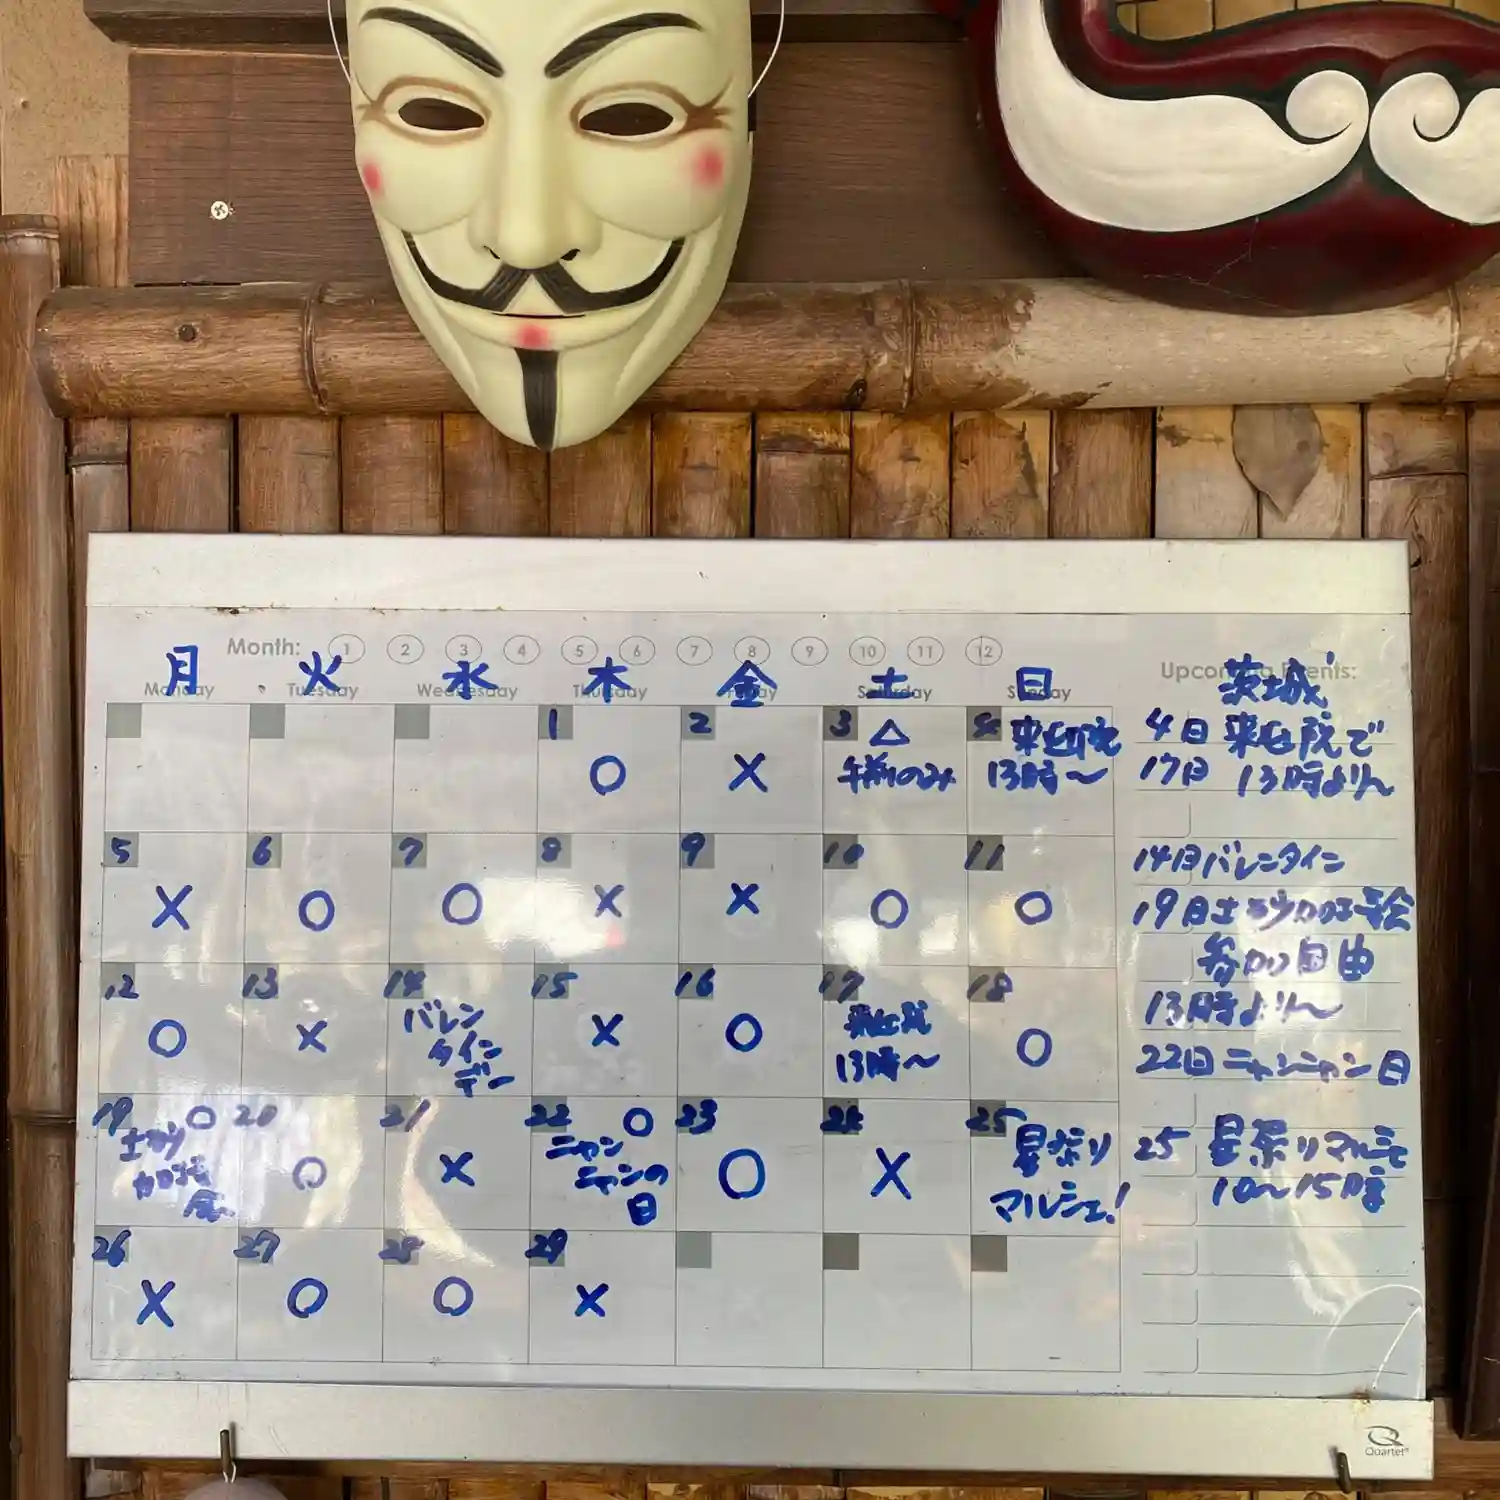 Month: 1 2 3 4 5 6 7 8 9 10 11 12
月 火 水 木 金 土 日
Monday Tuesday Wednesday Thursday Friday Saturday Sunday
1 2 3 4
○ × △ 午前のみ 13時〜
5 6 7 8 9 10 11
× ○ ○ × × ○ ○
12 13 14 15 16 17 18
○ × バレン × ○ ○
タイン 13時〜
デー
19 20 21 22 23 24 25
○ ○ × ○ ○ × 星祭り
ニャン マルシェ!
ニャンの
日
26 27 28 29
× ○ ○ ×
Upcoming Events:
茨城
4日 院で
17日 13時より〜
14日バレンタイン
19日土
参加自由
13時より〜
22日ニャンニャン日
25 星祭りマルシェ
10〜15時
Quartet